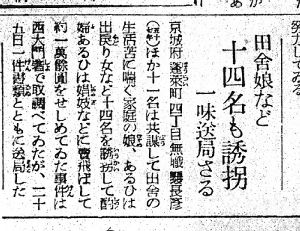 田舍娘など
十四名も誘拐
一味送局さる
京城府蓬萊町四丁目無職
長彦
ほか十一名は共謀して田舍の
生活苦に喘ぐ家庭の娘、あるひは
出戻り女など十四名を誘拐して酌
婦あるひは娼妓などに賣飛ばして
約一萬餘圓をせしめてゐた事件は
西大門署で取調べてゐたが、二十
五日一件書類とともに送局した